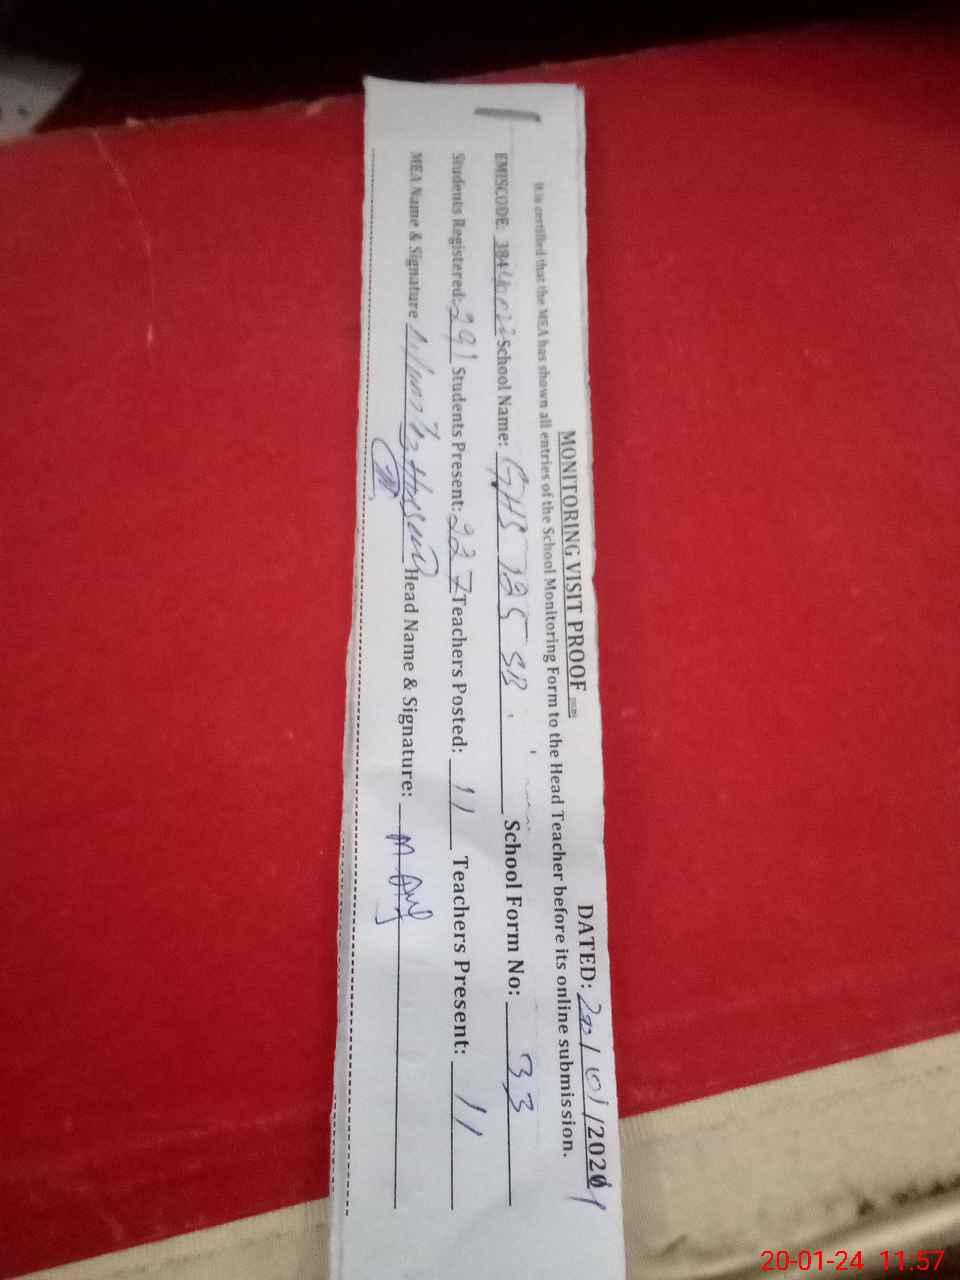 MONITORING VISIT PROOF DATED: 20/01/2024
It is certified that the MEA has shown all entries of the School Monitoring Form to the Head Teacher before its online submission.
EMISCODE: 384 School Name: GHS 125 SB School Form No: 33
Students Registered: 291 Students Present: 227 Teachers Posted: 11 Teachers Present: 11
MEA Name & Signature Hussain Head Name & Signature: M.
20-01-24 11:57